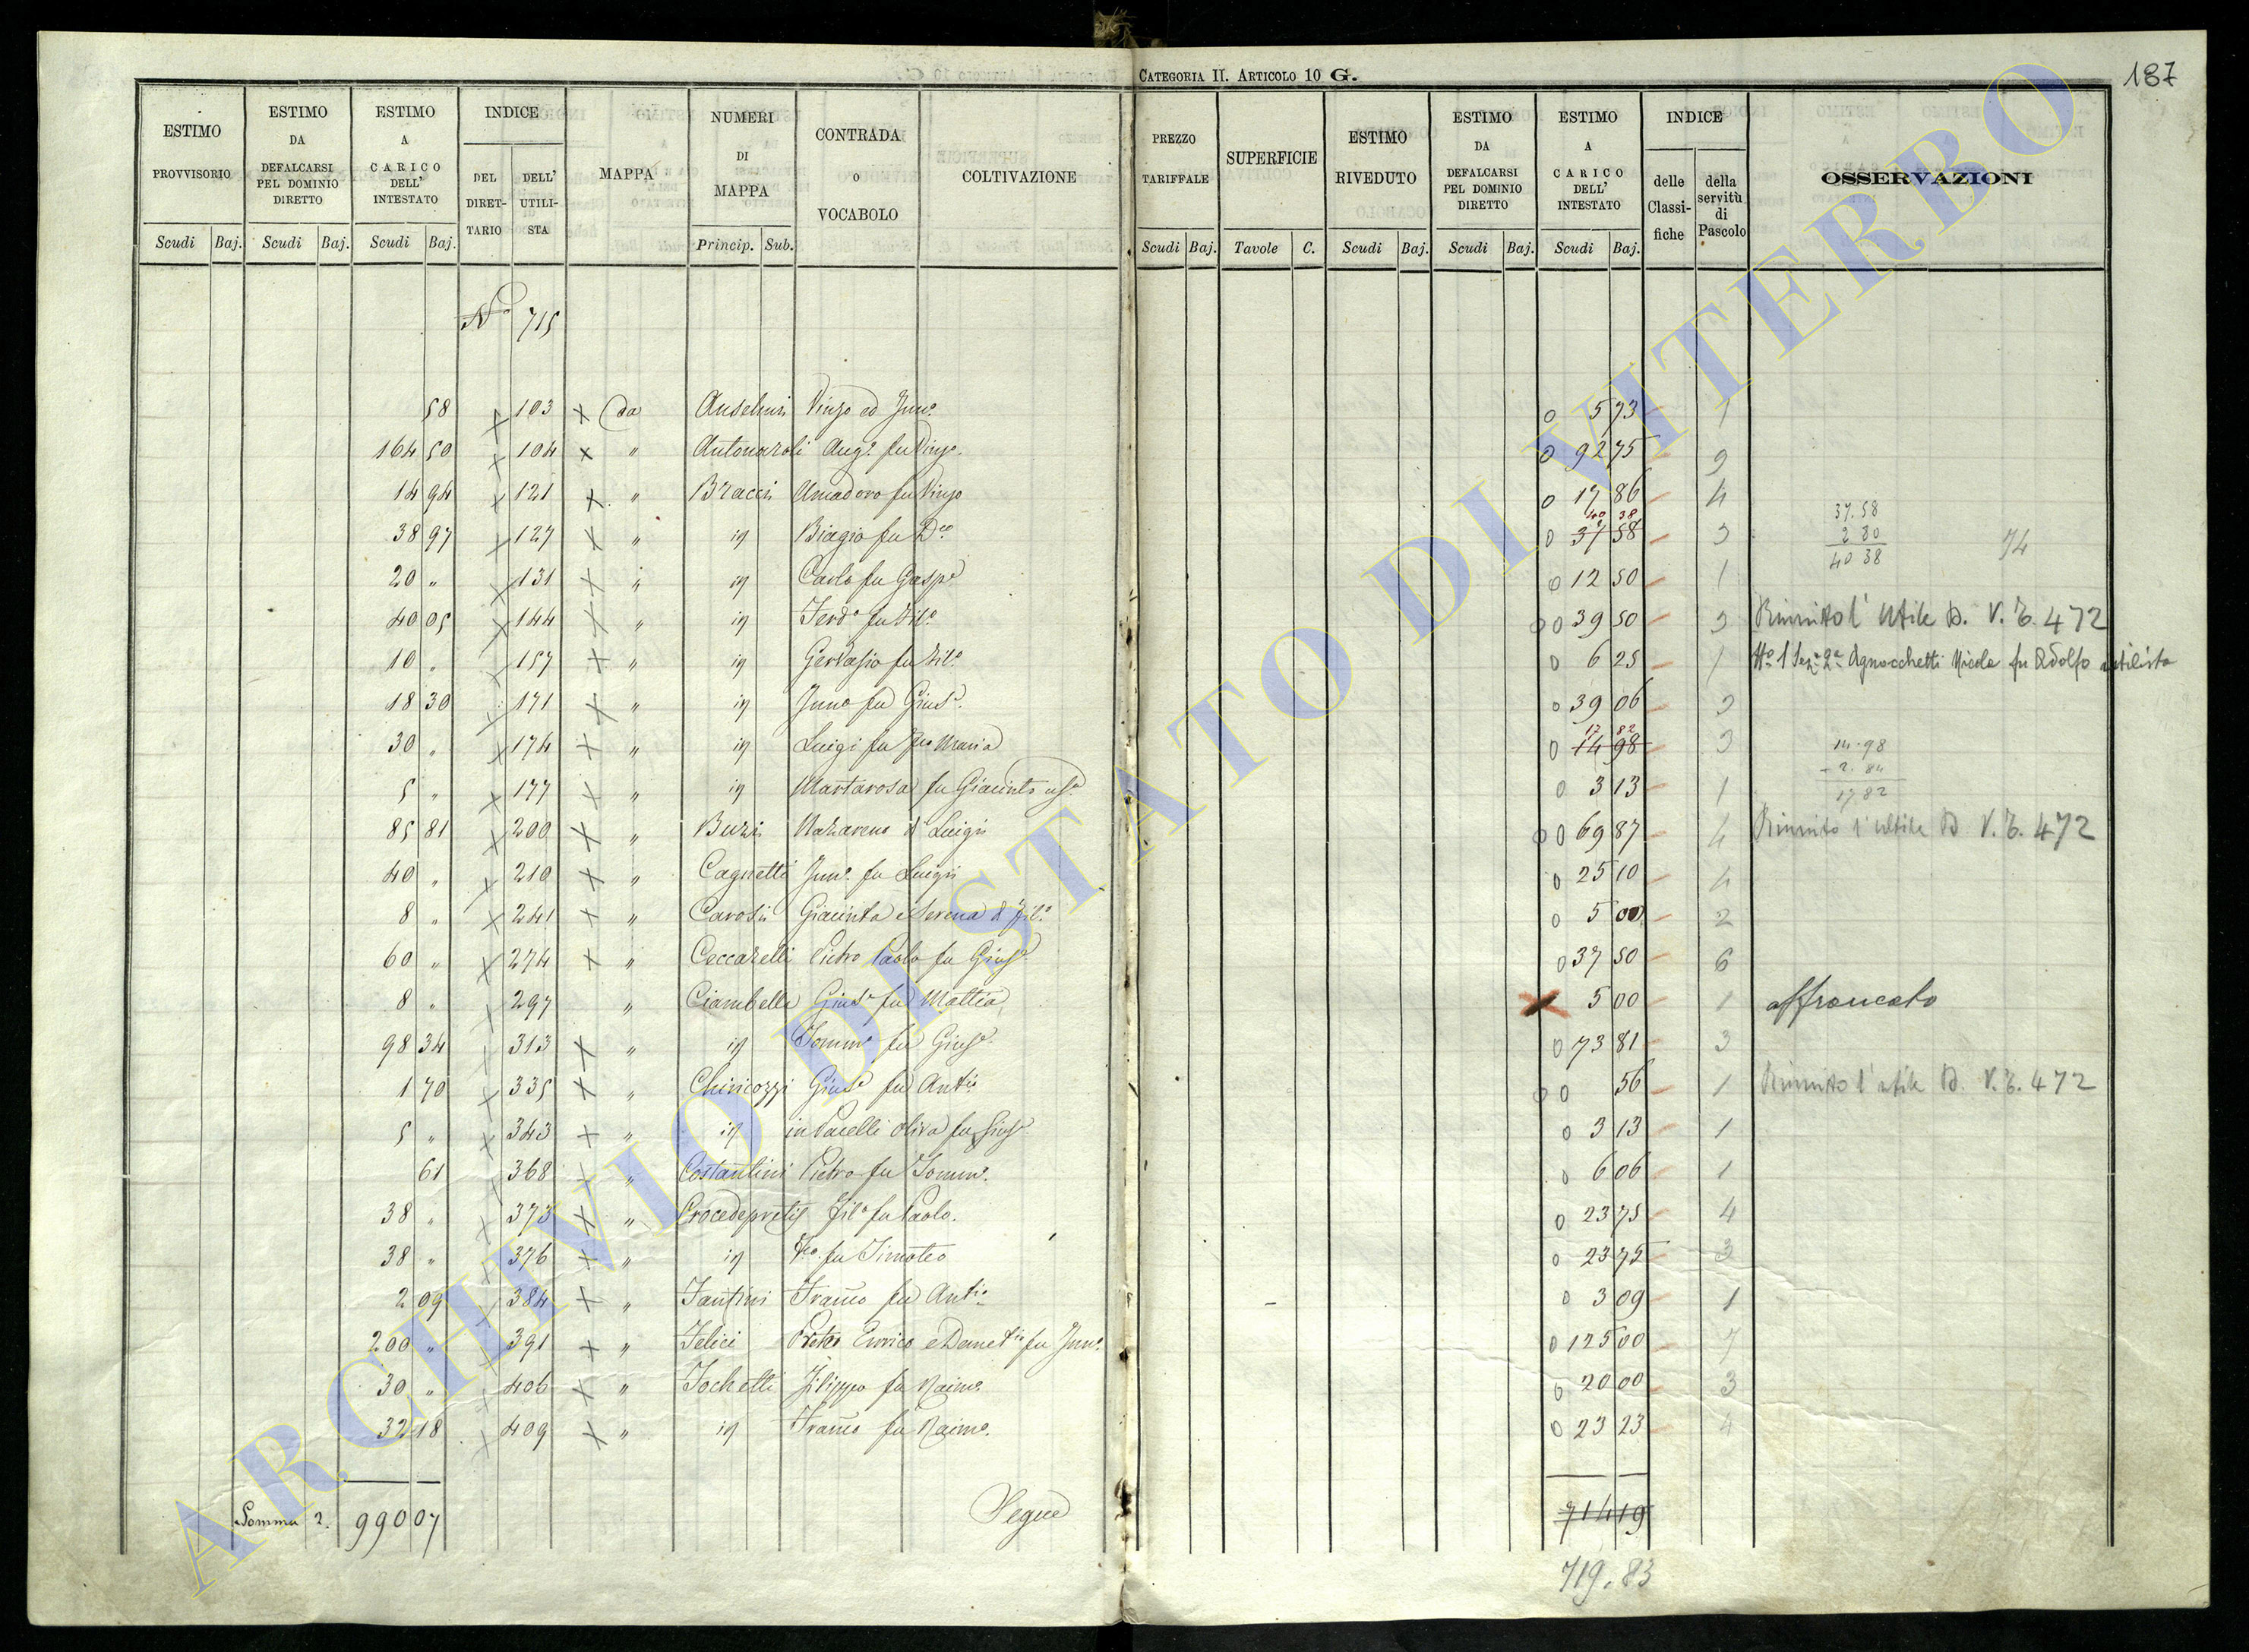 CATEGORIA II. ARTICOLO 10 G.
187
ESTIMO PROVVISORIO
ESTIMO DA DEFALCARSI PEL DOMINIO DIRETTO
ESTIMO A CARICO DELL' INTESTATO
INDICE
DEL DIRET-TARIO
DELL' UTILI-STA
MAPPA
NUMERI DI MAPPA
CONTRADA O VOCABOLO
COLTIVAZIONE
PREZZO TARIFFALE
SUPERFICIE
ESTIMO RIVEDUTO
ESTIMO DA DEFALCARSI PEL DOMINIO DIRETTO
ESTIMO A CARICO DELL' INTESTATO
INDICE
delle Classi-fiche
della servitù di Pascolo
OSSERVAZIONI
Scudi Baj. Scudi Baj. Scudi Baj. Princip. Sub. Scudi Baj. Tavole C. Scudi Baj. Scudi Baj. Scudi Baj.
No 715
58 103 x Da Anselmi Vinzo ed Innº 0 5 73 1
164 50 104 x " Antonaroli Augº fu Vinzº. 0 92 75 9
14 94 121 x " Bracci Amadoro fu Vinzo 0 17 86 4
40 38
38 97 127 x " id Biagio fu Dco 0 37 58 3
37.58
2 80
40 38
74
20 " 131 x " id Carlo fu Gaspe 0 12 50 1
40 05 144 x " id Ferdº fu Filº 0 39 50 3 Riunito l' Utile D. V. T. 472
10 " 157 x " id Gervasio fu Filº 0 6 25 1 Agnocchetti Nicola fu Adolfo utilista
18 30 171 x " id Innº fu Giuse. 0 39 06 3
17 82
30 " 174 x " id Luigi fu Maria 0 14 98 3
14.98
2.84
17 82
5 " 177 x " id Martarosa fu Giacinto 0 3 13 1
85 81 200 x " Buzzi Nazareno di Luigi 0 69 87 4 Riunito l'Utile D V. T. 472
40 " 210 x " Cagnetti Innº. fu Luigi 0 25 10 4
8 " 241 x " Carosi Giacinta e Serena di Filº 0 5 00 2
60 " 274 x " Ceccarelli Pietro Paolo fu Giuse 0 37 50 6
8 " 297 " Ciambella Giuse fu Mattia x 5 00 1 affrancato
98 34 313 x " id Tommº fu Giuse 0 73 81 3
1 70 335 x " Chiricozzi Giuse fu Antº 0 56 1 Riunito l'utile D. V. T. 472
5 " 343 x " id in Pacelli Oliva fu Giuse 0 3 13 1
61 368 x " Costantini Pietro fu Tommº. 0 6 06 1
38 " 373 x " Crocedepretis Filº fu Paolo. 0 23 75 4
38 " 376 x " id fu Timoteo 0 23 75 3
2 09 384 x " Fantini Franco fu Antº 0 3 09 1
200 " 391 x " Felici Pietro Enrico e Demetrio fu Innº. 0 125 00 7
30 " 406 x " Fochetti Filippo fu Raimº. 0 20 00 3
32 18 409 x " id Franco fu Raimº. 0 23 23 4
Somma 2. 990 07
Segue
714 19
719.83
ARCHIVIO DI STATO DI VITERBO